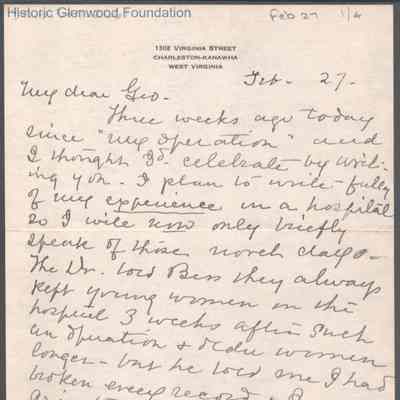 Historic Glenwood Foundation
Feb 27 1/4
1302 VIRGINIA STREET
CHARLESTON-KANAWHA
WEST VIRGINIA
Feb. 27.
My dear Geo.
Three weeks ago today
since "my operation" and
I thought I'd celebrate by writ-
ing you. I plan to write fully
of my experience in a hospital
so I will now only briefly
speak of those days.
The Dr. told Bess they always
kept young women in the
hospital 3 weeks after such
an operation & older women
longer - but he told me I had
broken every record